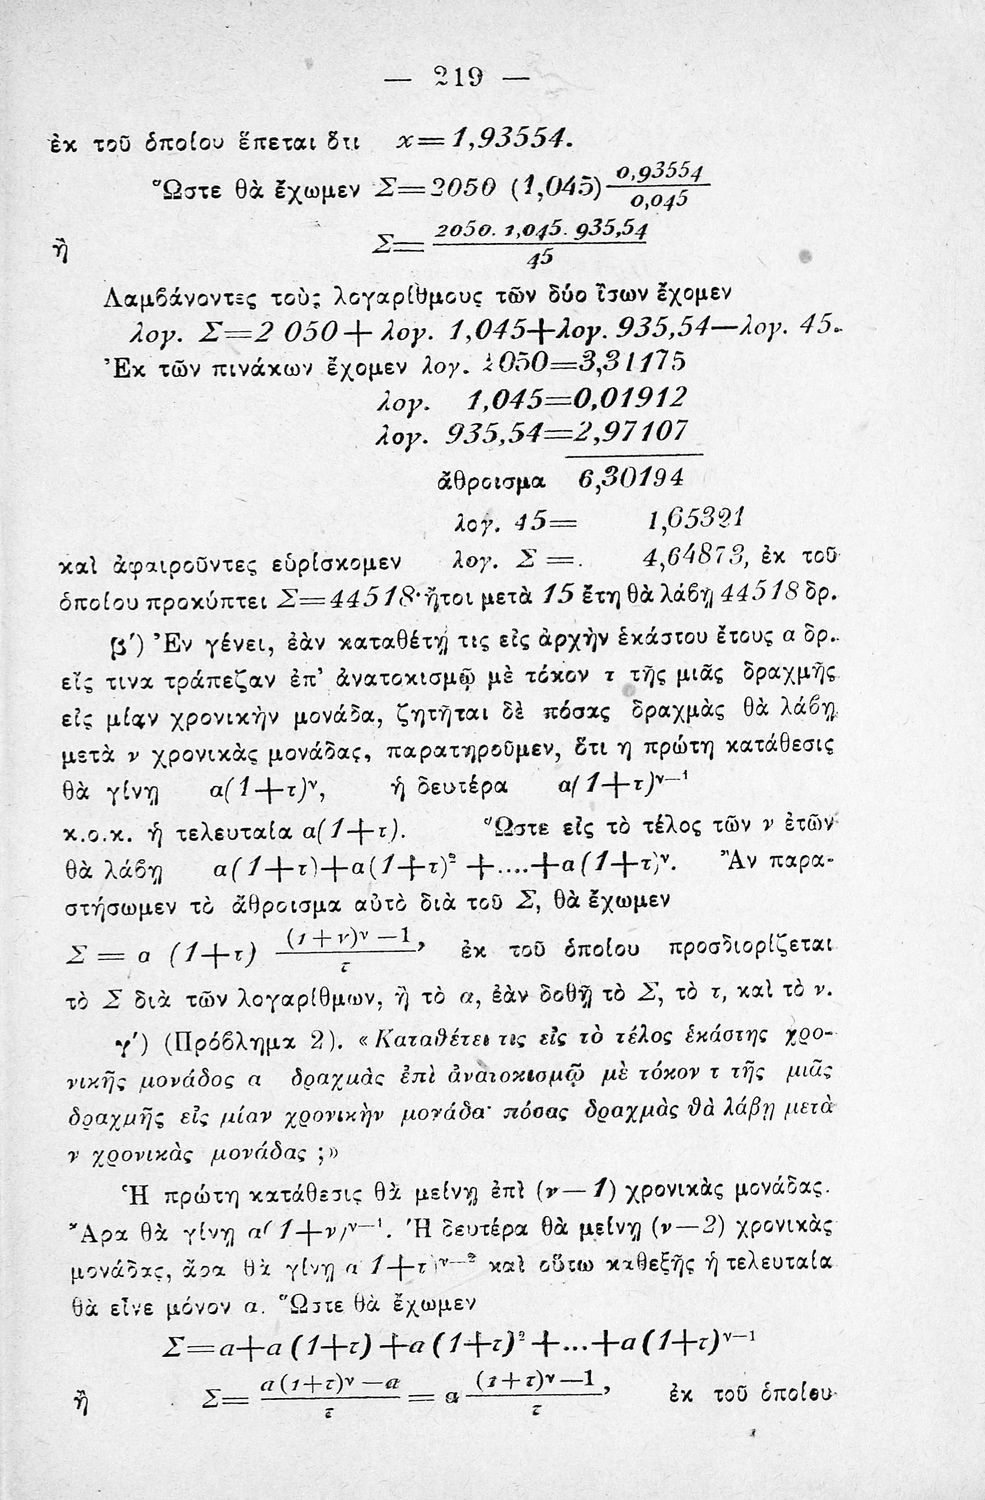 — 219 —
ἐκ τοῦ ὁποίου ἕπεται ὅτι x=1,93554.
Ὥστε θὰ ἔχωμεν Σ=2050 (1,045) 0,93554/0,045
ἢ Σ= 2050. 1,045. 935,54/45
Λαμβάνοντες τοὺς λογαρίθμους τῶν δύο ἴσων ἔχομεν
λογ. Σ=2 050+λογ. 1,045+λογ. 935,54—λογ. 45.
Ἐκ τῶν πινάκων ἔχομεν λογ. 2050=3,31175
λογ. 1,045=0,01912
λογ. 935,54=2,97107
ἄθροισμα 6,30194
λογ. 45= 1,65321
καὶ ἀφαιροῦντες εὑρίσκομεν λογ. Σ=. 4,64873, ἐκ τοῦ
ὁποίου προκύπτει Σ=44518· ἤτοι μετὰ 15 ἔτη θὰ λάβῃ 44518 δρ.
β΄) Ἐν γένει, ἐὰν καταθέτῃ τις εἰς ἀρχὴν ἑκάστου ἔτους α δρ.
εἴς τινα τράπεζαν ἐπ’ ἀνατοκισμῷ μὲ τόκον τ τῆς μιᾶς δραχμῆς
εἰς μίαν χρονικὴν μονάδα, ζητῆται δὲ πόσας δραχμὰς θὰ λάβῃ
μετὰ ν χρονικὰς μονάδας, παρατηροῦμεν, ὅτι η πρώτη κατάθεσις
θὰ γίνῃ α(1+τ)ᵛ, ἡ δευτέρα α(1+τ)ᵛ⁻¹
κ.ο.κ. ἡ τελευταία α(1+τ). Ὥστε εἰς τὸ τέλος τῶν ν ἐτῶν
θὰ λάβῃ α(1+τ)+α(1+τ)²+....+α(1+τ)ᵛ. Ἂν παρα-
στήσωμεν τὸ ἄθροισμα αὐτὸ διὰ τοῦ Σ, θὰ ἔχωμεν
Σ = α (1+τ) (1+ν)ᵛ—1/τ, ἐκ τοῦ ὁποίου προσδιορίζεται
τὸ Σ διὰ τῶν λογαρίθμων, ἢ τὸ α, ἐὰν δοθῇ τὸ Σ, τὸ τ, καὶ τὸ ν.
γ΄) (Πρόβλημα 2). «Καταθέτει τις εἰς τὸ τέλος ἑκάστης χρο-
νικῆς μονάδος α δραχμὰς ἐπὶ ἀνατοκισμῷ μὲ τόκον τ τῆς μιᾶς
δραχμῆς εἰς μίαν χρονικὴν μονάδα· πόσας δραχμὰς θὰ λάβῃ μετὰ
ν χρονικὰς μονάδας ;»
Ἡ πρώτη κατάθεσις θὰ μείνῃ ἐπὶ (ν—1) χρονικὰς μονάδας.
Ἄρα θὰ γίνῃ α(1+ν)ᵛ⁻¹. Ἡ δευτέρα θὰ μείνῃ (ν—2) χρονικὰς
μονάδας, ἄρα θὰ γίνῃ α 1+τ)ᵛ⁻² καὶ οὕτω καθεξῆς ἡ τελευταία
θὰ εἶνε μόνον α. Ὥστε θὰ ἔχωμεν
Σ=α+α(1+τ)+α(1+τ)²+...+α(1+τ)ᵛ⁻¹
ἢ Σ= α(1+τ)ᵛ—α/τ = α (1+τ)ᵛ—1/τ, ἐκ τοῦ ὁποίου